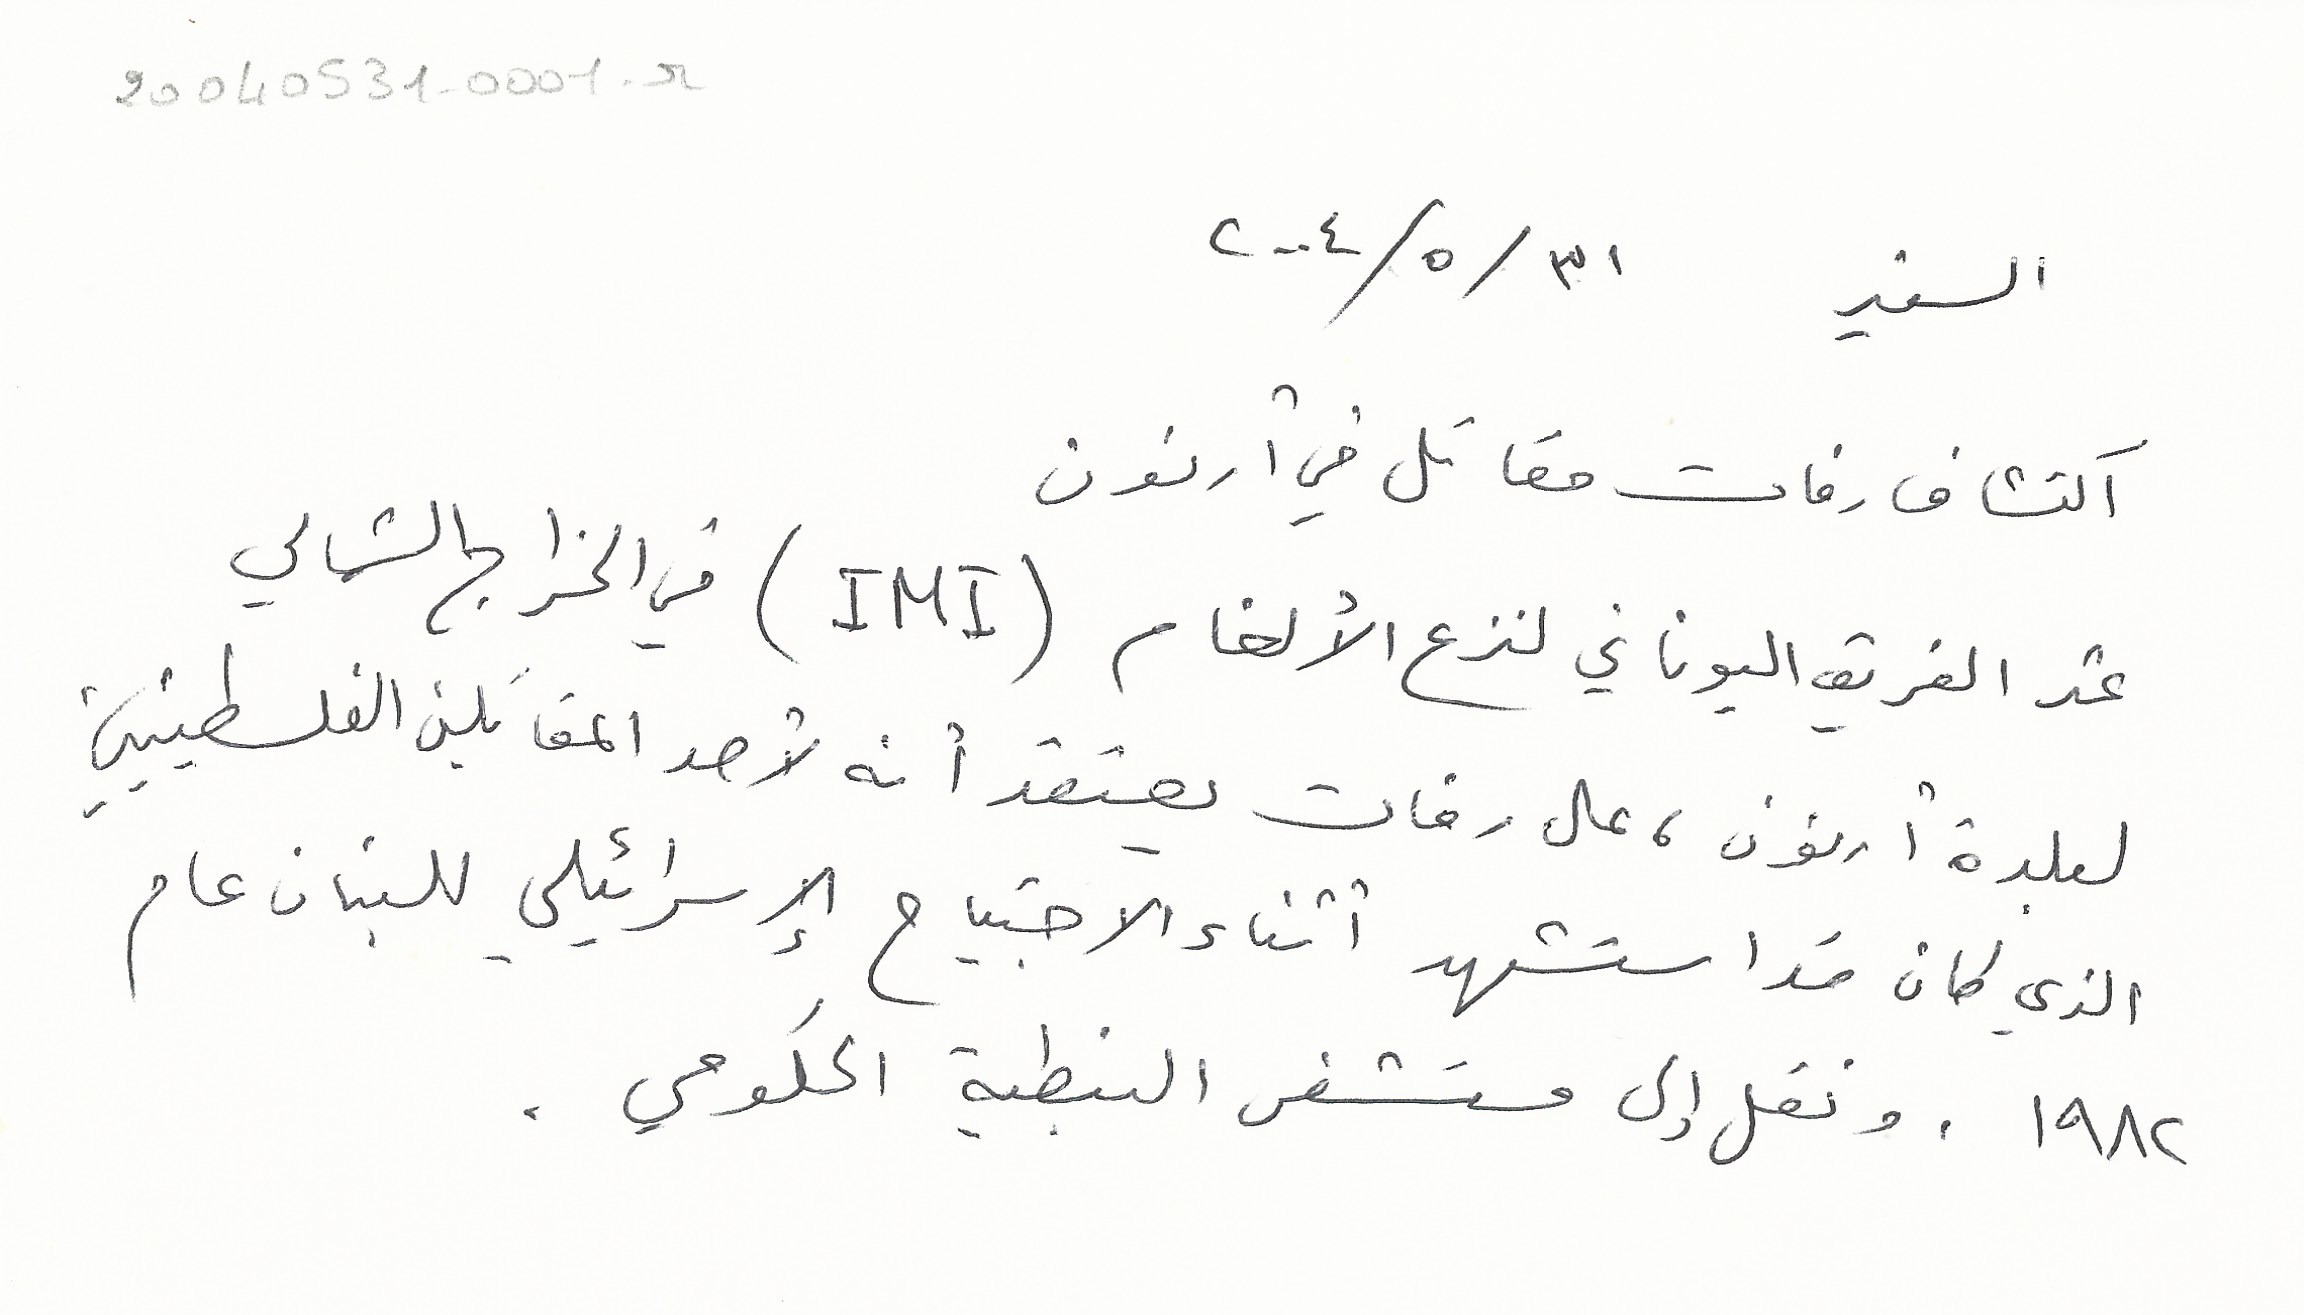 20040531-0001-र
السفير ٣١/٥/٢٠٠٤
اكتشاف رفات مقاتل في أرنون
عثر الفريق اليوناني لنزع الألغام (IMI) في الخراج الشمالي
لبلدة أرنون، على رفات يعتقد أنه لأحد المقاتلين الفلسطينيين
الذي كان قد استشهد أثناء الاجتياح الإسرائيلي للبنان عام
١٩٨٢. ونقل إلى مستشفى النبطية الحكومي.